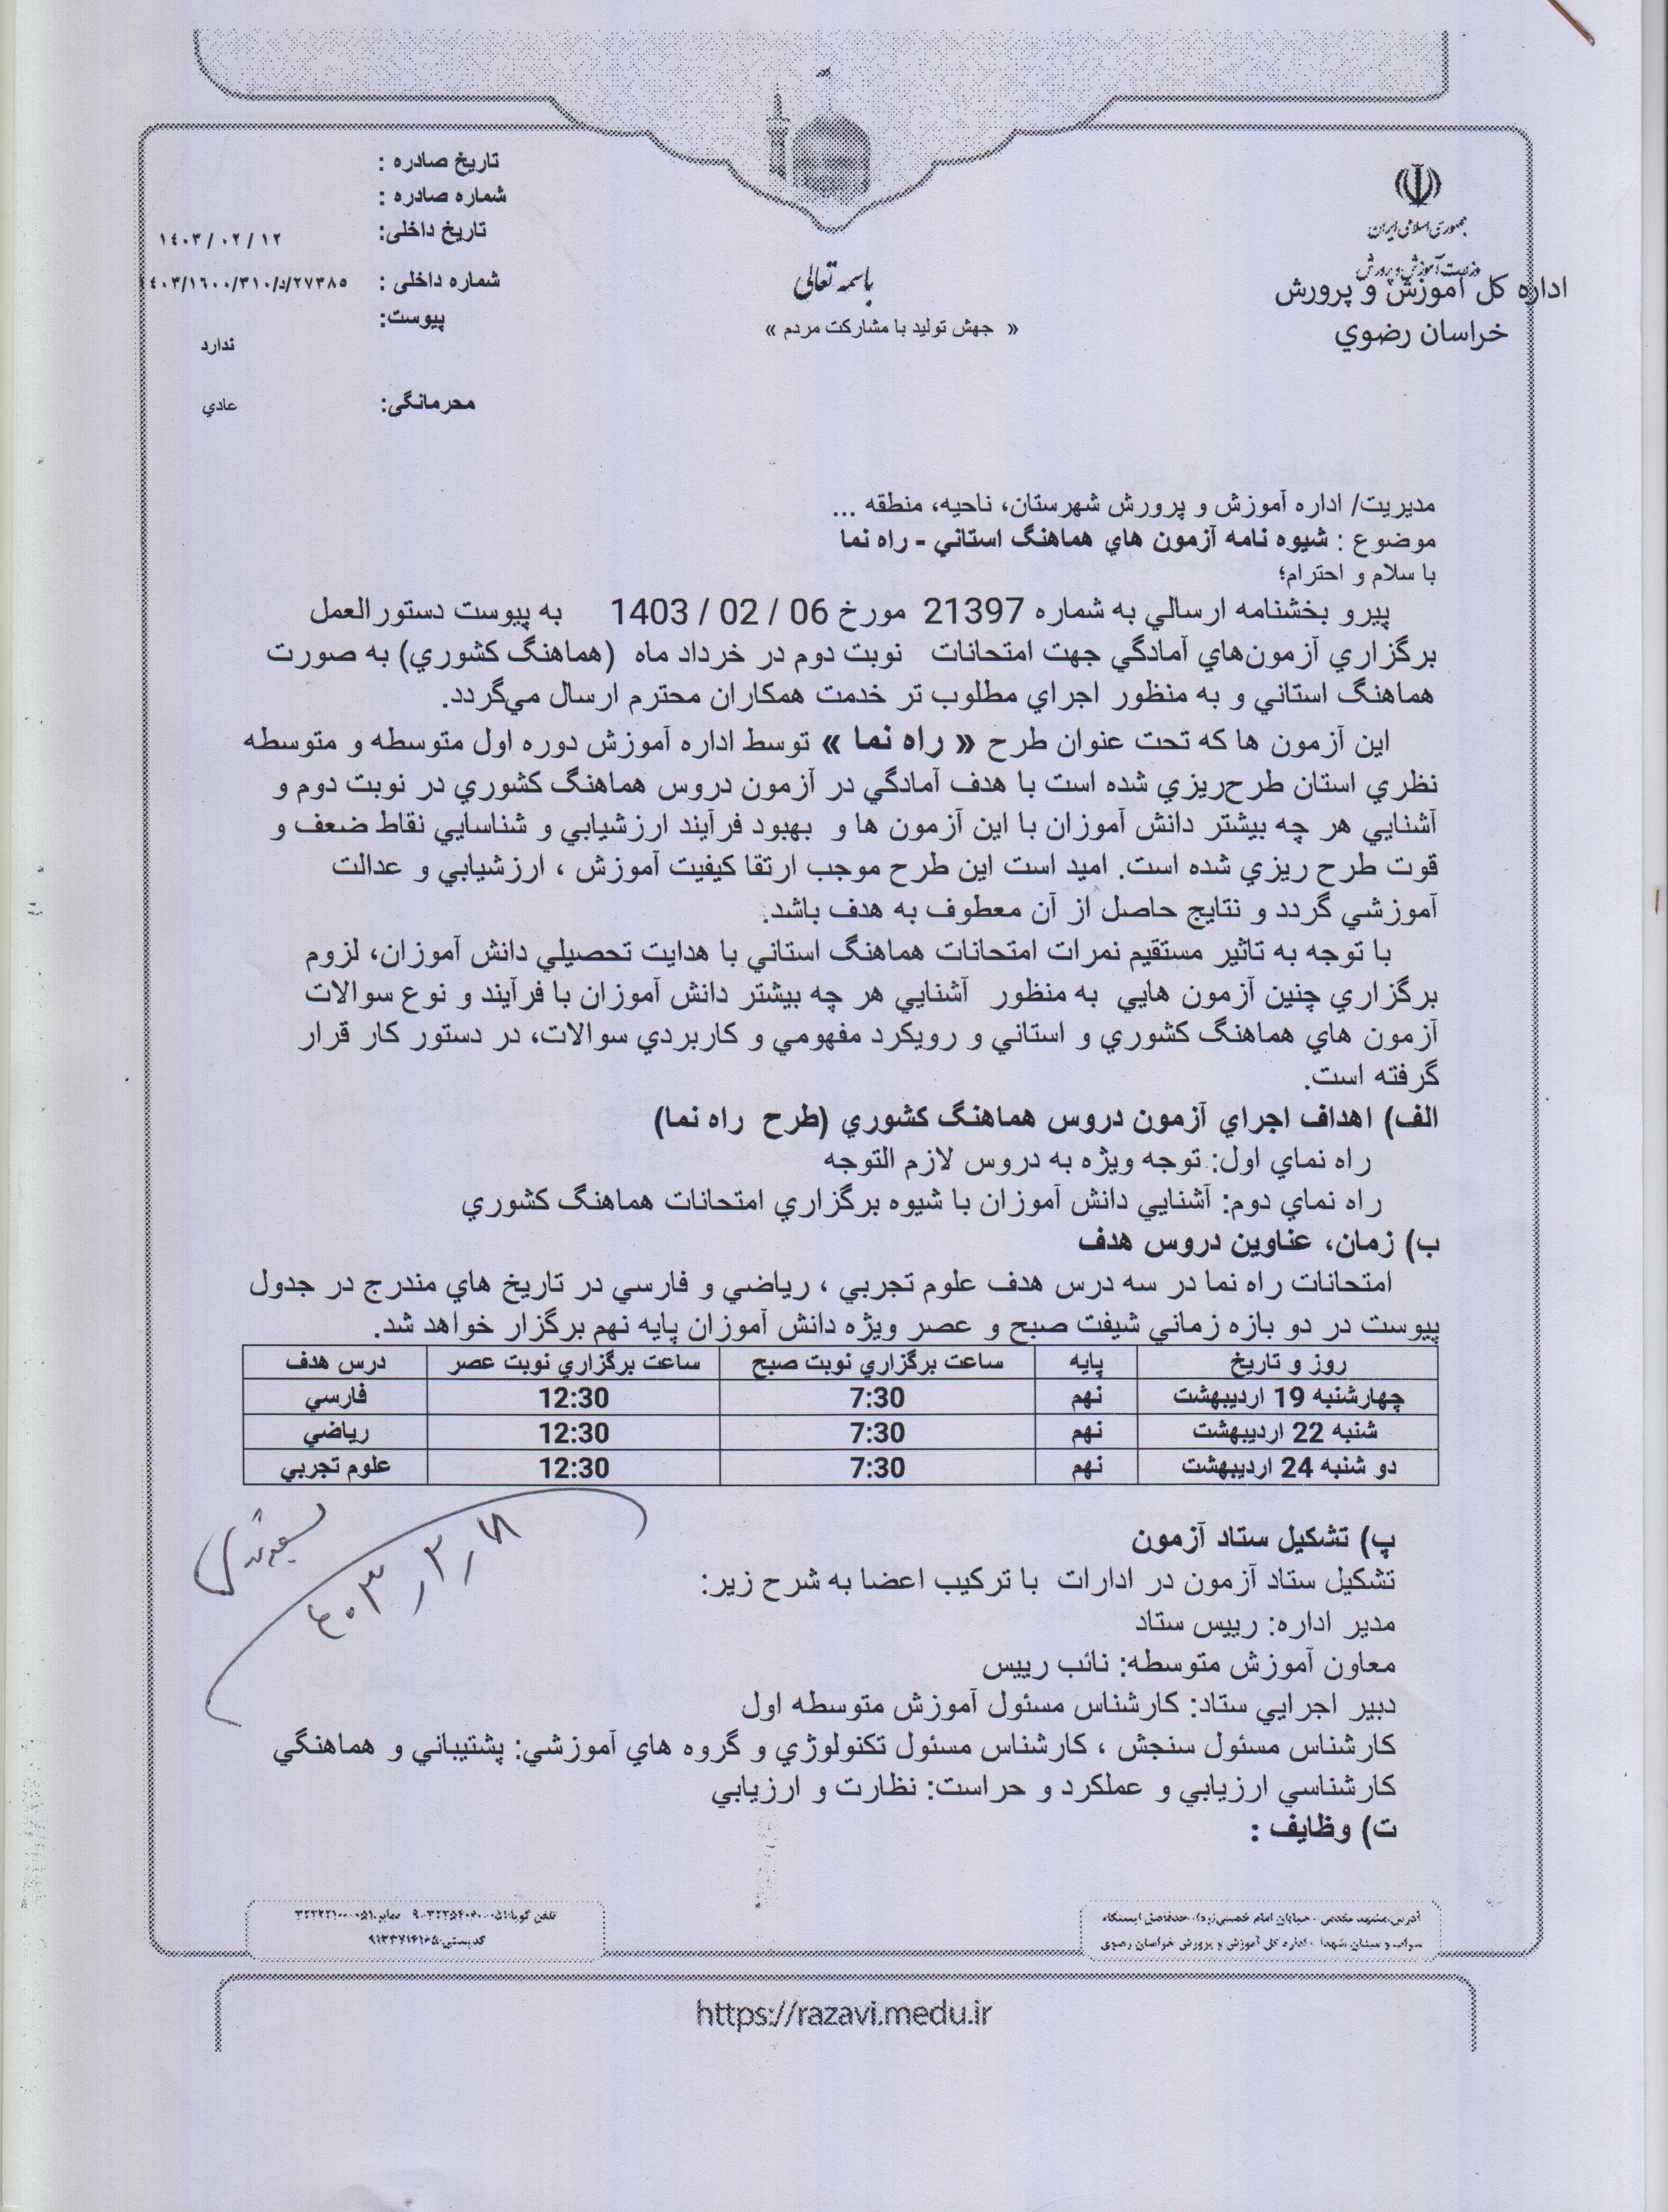 جمهوری اسلامی ایران
وزارت آموزش و پرورش
اداره کل آموزش و پرورش
خراسان رضوي
باسمه تعالی
« جهش تولید با مشارکت مردم »
تاریخ صادره :
شماره صادره :
تاریخ داخلی: ۱۴۰۳/۰۲/۱۲
شماره داخلی : ۴۰۳/۱۶۰۰/۳۱۰/د/۲۷۳۸۵
پیوست:
ندارد
محرمانگی: عادي
مدیریت/ اداره آموزش و پرورش شهرستان، ناحیه، منطقه ...
موضوع : شیوه نامه آزمون هاي هماهنگ استاني - راه نما
با سلام و احترام؛
پیرو بخشنامه ارسالي به شماره 21397 مورخ 06 / 02 / 1403 به پیوست دستورالعمل
برگزاري آزمون‌هاي آمادگي جهت امتحانات نوبت دوم در خرداد ماه (هماهنگ کشوري) به صورت
هماهنگ استاني و به منظور اجراي مطلوب تر خدمت همکاران محترم ارسال مي‌گردد.
این آزمون ها که تحت عنوان طرح « راه نما » توسط اداره آموزش دوره اول متوسطه و متوسطه
نظري استان طرح‌ریزي شده است با هدف آمادگي در آزمون دروس هماهنگ کشوري در نوبت دوم و
آشنایي هر چه بیشتر دانش آموزان با این آزمون ها و بهبود فرآیند ارزشیابي و شناسایي نقاط ضعف و
قوت طرح ریزي شده است. امید است این طرح موجب ارتقا کیفیت آموزش ، ارزشیابي و عدالت
آموزشي گردد و نتایج حاصل از آن معطوف به هدف باشد.
با توجه به تاثیر مستقیم نمرات امتحانات هماهنگ استاني با هدایت تحصیلي دانش آموزان، لزوم
برگزاري چنین آزمون هایي به منظور آشنایي هر چه بیشتر دانش آموزان با فرآیند و نوع سوالات
آزمون هاي هماهنگ کشوري و استاني و رویکرد مفهومي و کاربردي سوالات، در دستور کار قرار
گرفته است.
الف) اهداف اجراي آزمون دروس هماهنگ کشوري (طرح راه نما)
راه نماي اول: توجه ویژه به دروس لازم التوجه
راه نماي دوم: آشنایي دانش آموزان با شیوه برگزاري امتحانات هماهنگ کشوري
ب) زمان، عناوین دروس هدف
امتحانات راه نما در سه درس هدف علوم تجربي ، ریاضي و فارسي در تاریخ هاي مندرج در جدول
پیوست در دو بازه زماني شیفت صبح و عصر ویژه دانش آموزان پایه نهم برگزار خواهد شد.
روز و تاریخ پایه ساعت برگزاري نوبت صبح ساعت برگزاري نوبت عصر درس هدف
چهارشنبه 19 اردیبهشت نهم 7:30 12:30 فارسي
شنبه 22 اردیبهشت نهم 7:30 12:30 ریاضي
دو شنبه 24 اردیبهشت نهم 7:30 12:30 علوم تجربي
پ) تشکیل ستاد آزمون
تشکیل ستاد آزمون در ادارات با ترکیب اعضا به شرح زیر:
مدیر اداره: رییس ستاد
معاون آموزش متوسطه: نائب رییس
دبیر اجرایي ستاد: کارشناس مسئول آموزش متوسطه اول
کارشناس مسئول سنجش ، کارشناس مسئول تکنولوژي و گروه هاي آموزشي: پشتیباني و هماهنگي
کارشناسي ارزیابي و عملکرد و حراست: نظارت و ارزیابي
ت) وظایف :
آدرس:مشهد مقدس - خیابان امام خمینی(ره)، حدفاصل ایستگاه
سراب و میدان شهدا - اداره کل آموزش و پرورش خراسان رضوی
https://razavi.medu.ir